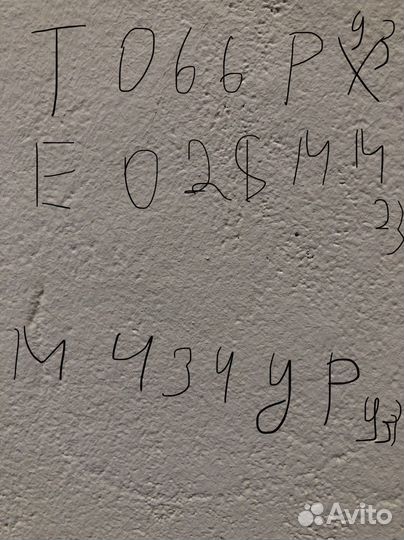 Т 066 РХ 93
Е 028 ММ
23
М 434 УР 93
Avito